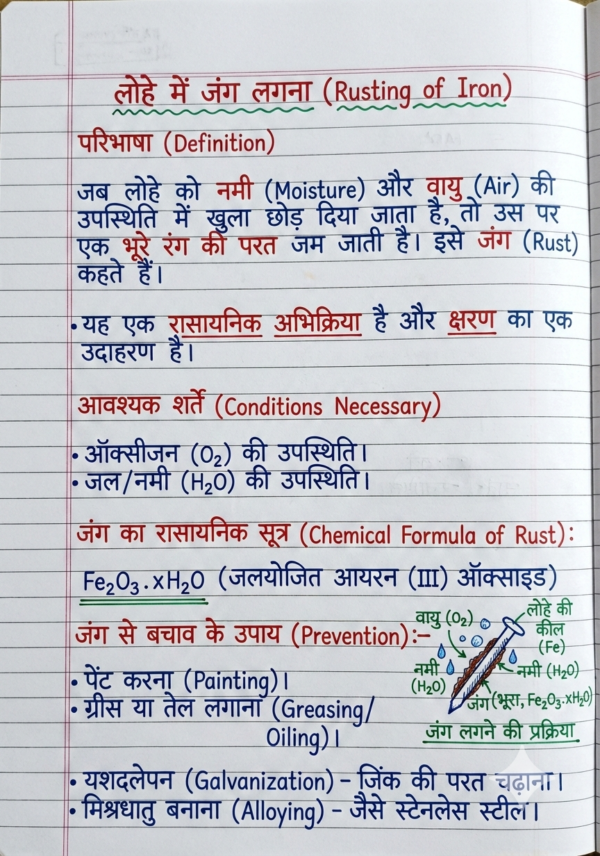 लोहे में जंग लगना (Rusting of Iron)
परिभाषा (Definition)
जब लोहे को नमी (Moisture) और वायु (Air) की
उपस्थिति में खुला छोड़ दिया जाता है, तो उस पर
एक भूरे रंग की परत जम जाती है। इसे जंग (Rust)
कहते हैं।
• यह एक रासायनिक अभिक्रिया है और क्षरण का एक
उदाहरण है।
आवश्यक शर्ते (Conditions Necessary)
• ऑक्सीजन (O₂) की उपस्थिति।
• जल/नमी (H₂O) की उपस्थिति।
जंग का रासायनिक सूत्र (Chemical Formula of Rust):
Fe₂O₃.xH₂O (जलयोजित आयरन (III) ऑक्साइड)
जंग से बचाव के उपाय (Prevention):-
• पेंट करना (Painting)।
• ग्रीस या तेल लगाना (Greasing/
Oiling)।
वायु (O₂)
लोहे की
कील
(Fe)
नमी
(H₂O)
नमी (H₂O)
जंग (भूरा, Fe₂O₃.xH₂O)
जंग लगने की प्रक्रिया
• यशदलेपन (Galvanization) – जिंक की परत चढ़ाना।
• मिश्रधातु बनाना (Alloying) – जैसे स्टेनलेस स्टील।